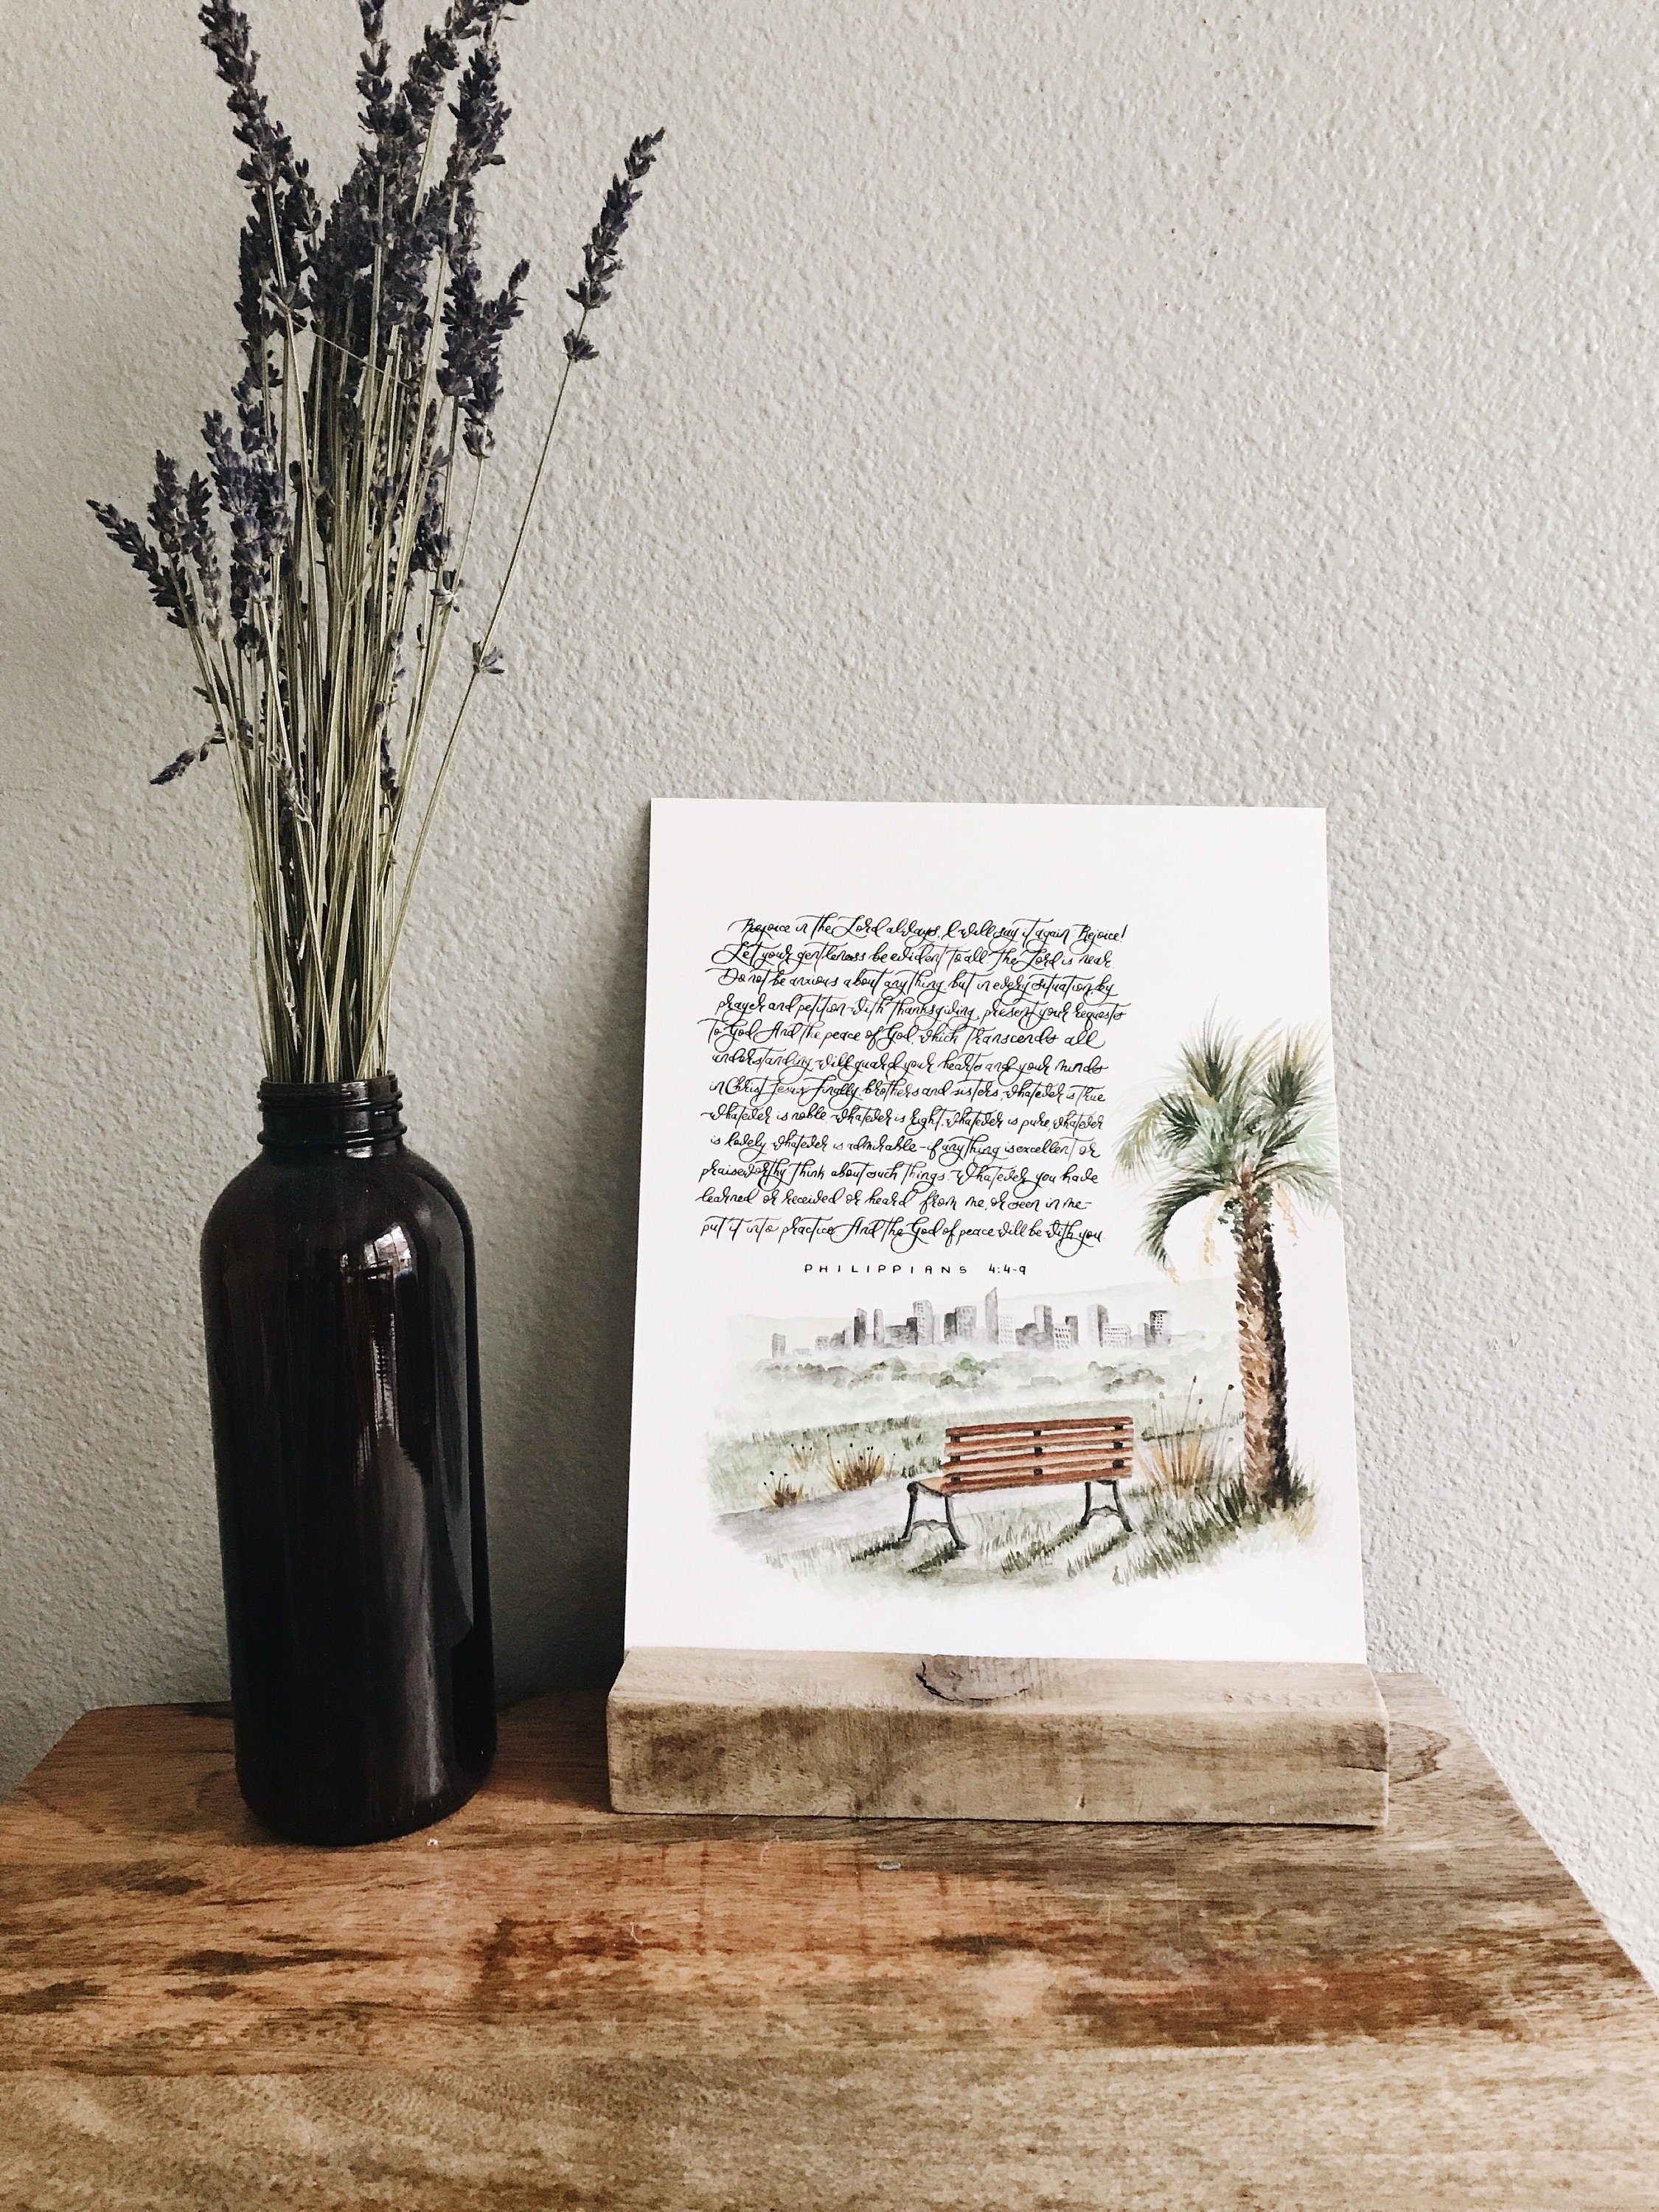 Rejoice in the Lord always. I will say it again: Rejoice!
Let your gentleness be evident to all. The Lord is near.
Do not be anxious about anything, but in every situation, by
prayer and petition, with thanksgiving, present your requests
to God. And the peace of God, which transcends all
understanding, will guard your hearts and your minds
in Christ Jesus. Finally, brothers and sisters, whatever is true
whatever is noble, whatever is right, whatever is pure, whatever
is lovely, whatever is admirable-if anything is excellent or
praiseworthy think about such things. Whatever you have
learned or received or heard from me, or seen in me-
put it into practice. And the God of peace will be with you.
PHILIPPIANS 4:4-9